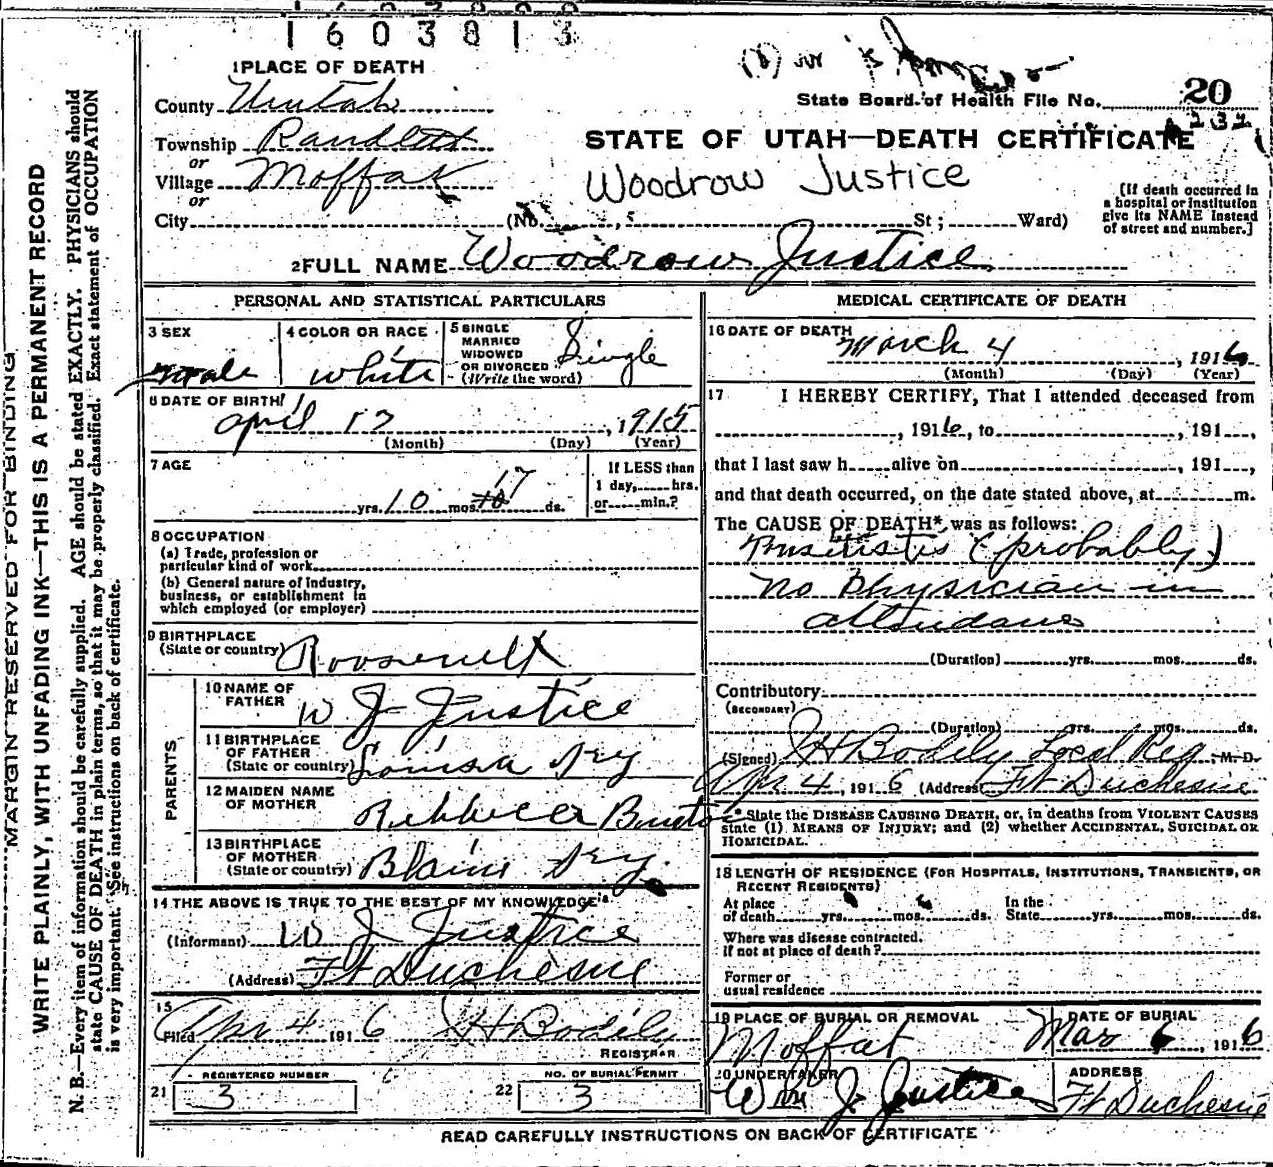 1603813
1 PLACE OF DEATH
County Uintah
State Board of Health File No. 20
Township Randlett
STATE OF UTAH—DEATH CERTIFICATE
or
Village Moffat
Woodrow Justice
or
City (No. St; Ward)
[If death occurred in a hospital or institution give its NAME instead of street and number.]
2 FULL NAME Woodrow Justice
PERSONAL AND STATISTICAL PARTICULARS
3 SEX
male
4 COLOR OR RACE
white
5 SINGLE
MARRIED
WIDOWED
OR DIVORCED
(Write the word)
Single
6 DATE OF BIRTH
April 17, 1915
(Month) (Day) (Year)
7 AGE
yrs. 10 mos. 17 ds.
If LESS than
1 day, hrs.
or min.?
8 OCCUPATION
(a) Trade, profession or
particular kind of work
(b) General nature of industry,
business, or establishment in
which employed (or employer)
9 BIRTHPLACE
(State or country) Roosevelt
PARENTS
10 NAME OF
FATHER W J Justice
11 BIRTHPLACE
OF FATHER
(State or country) Louisa Ky
12 MAIDEN NAME
OF MOTHER
13 BIRTHPLACE
OF MOTHER
(State or country) Blaine Ky.
14 THE ABOVE IS TRUE TO THE BEST OF MY KNOWLEDGE
(Informant) W J Justice
(Address) Ft Duchesne
15
Filed Apr 4 1916 JH Bodily
REGISTRAR
REGISTERED NUMBER
21 3
NO. OF BURIAL PERMIT
22 3
MEDICAL CERTIFICATE OF DEATH
16 DATE OF DEATH
March 4, 1916
(Month) (Day) (Year)
17 I HEREBY CERTIFY, That I attended deceased from
, 1916, to , 191 ,
that I last saw h alive on , 191 ,
and that death occurred, on the date stated above, at m.
The CAUSE OF DEATH* was as follows:
(probably)
no physician in
attendance
(Duration) yrs. mos. ds.
Contributory
(SECONDARY)
(Duration) yrs. mos. ds.
(Signed) JH Bodily Local Reg M. D.
Apr 4, 1916 (Address) Ft Duchesne
* State the DISEASE CAUSING DEATH, or, in deaths from VIOLENT CAUSES
state (1) MEANS OF INJURY; and (2) whether ACCIDENTAL, SUICIDAL OR
HOMICIDAL.
18 LENGTH OF RESIDENCE (FOR HOSPITALS, INSTITUTIONS, TRANSIENTS, OR
RECENT RESIDENTS)
At place In the
of death yrs. mos. ds. State yrs. mos. ds.
Where was disease contracted.
if not at place of death?
Former or
usual residence
19 PLACE OF BURIAL OR REMOVAL
Moffat
DATE OF BURIAL
Mar 6, 1916
20 UNDERTAKER
Wm J. Justice
ADDRESS
Ft Duchesne
READ CAREFULLY INSTRUCTIONS ON BACK OF CERTIFICATE
MARGIN RESERVED FOR BINDING
WRITE PLAINLY, WITH UNFADING INK—THIS IS A PERMANENT RECORD
N. B.—Every item of information should be carefully supplied. AGE should be stated EXACTLY. PHYSICIANS should
state CAUSE OF DEATH in plain terms, so that it may be properly classified. Exact statement of OCCUPATION
is very important. See instructions on back of certificate.